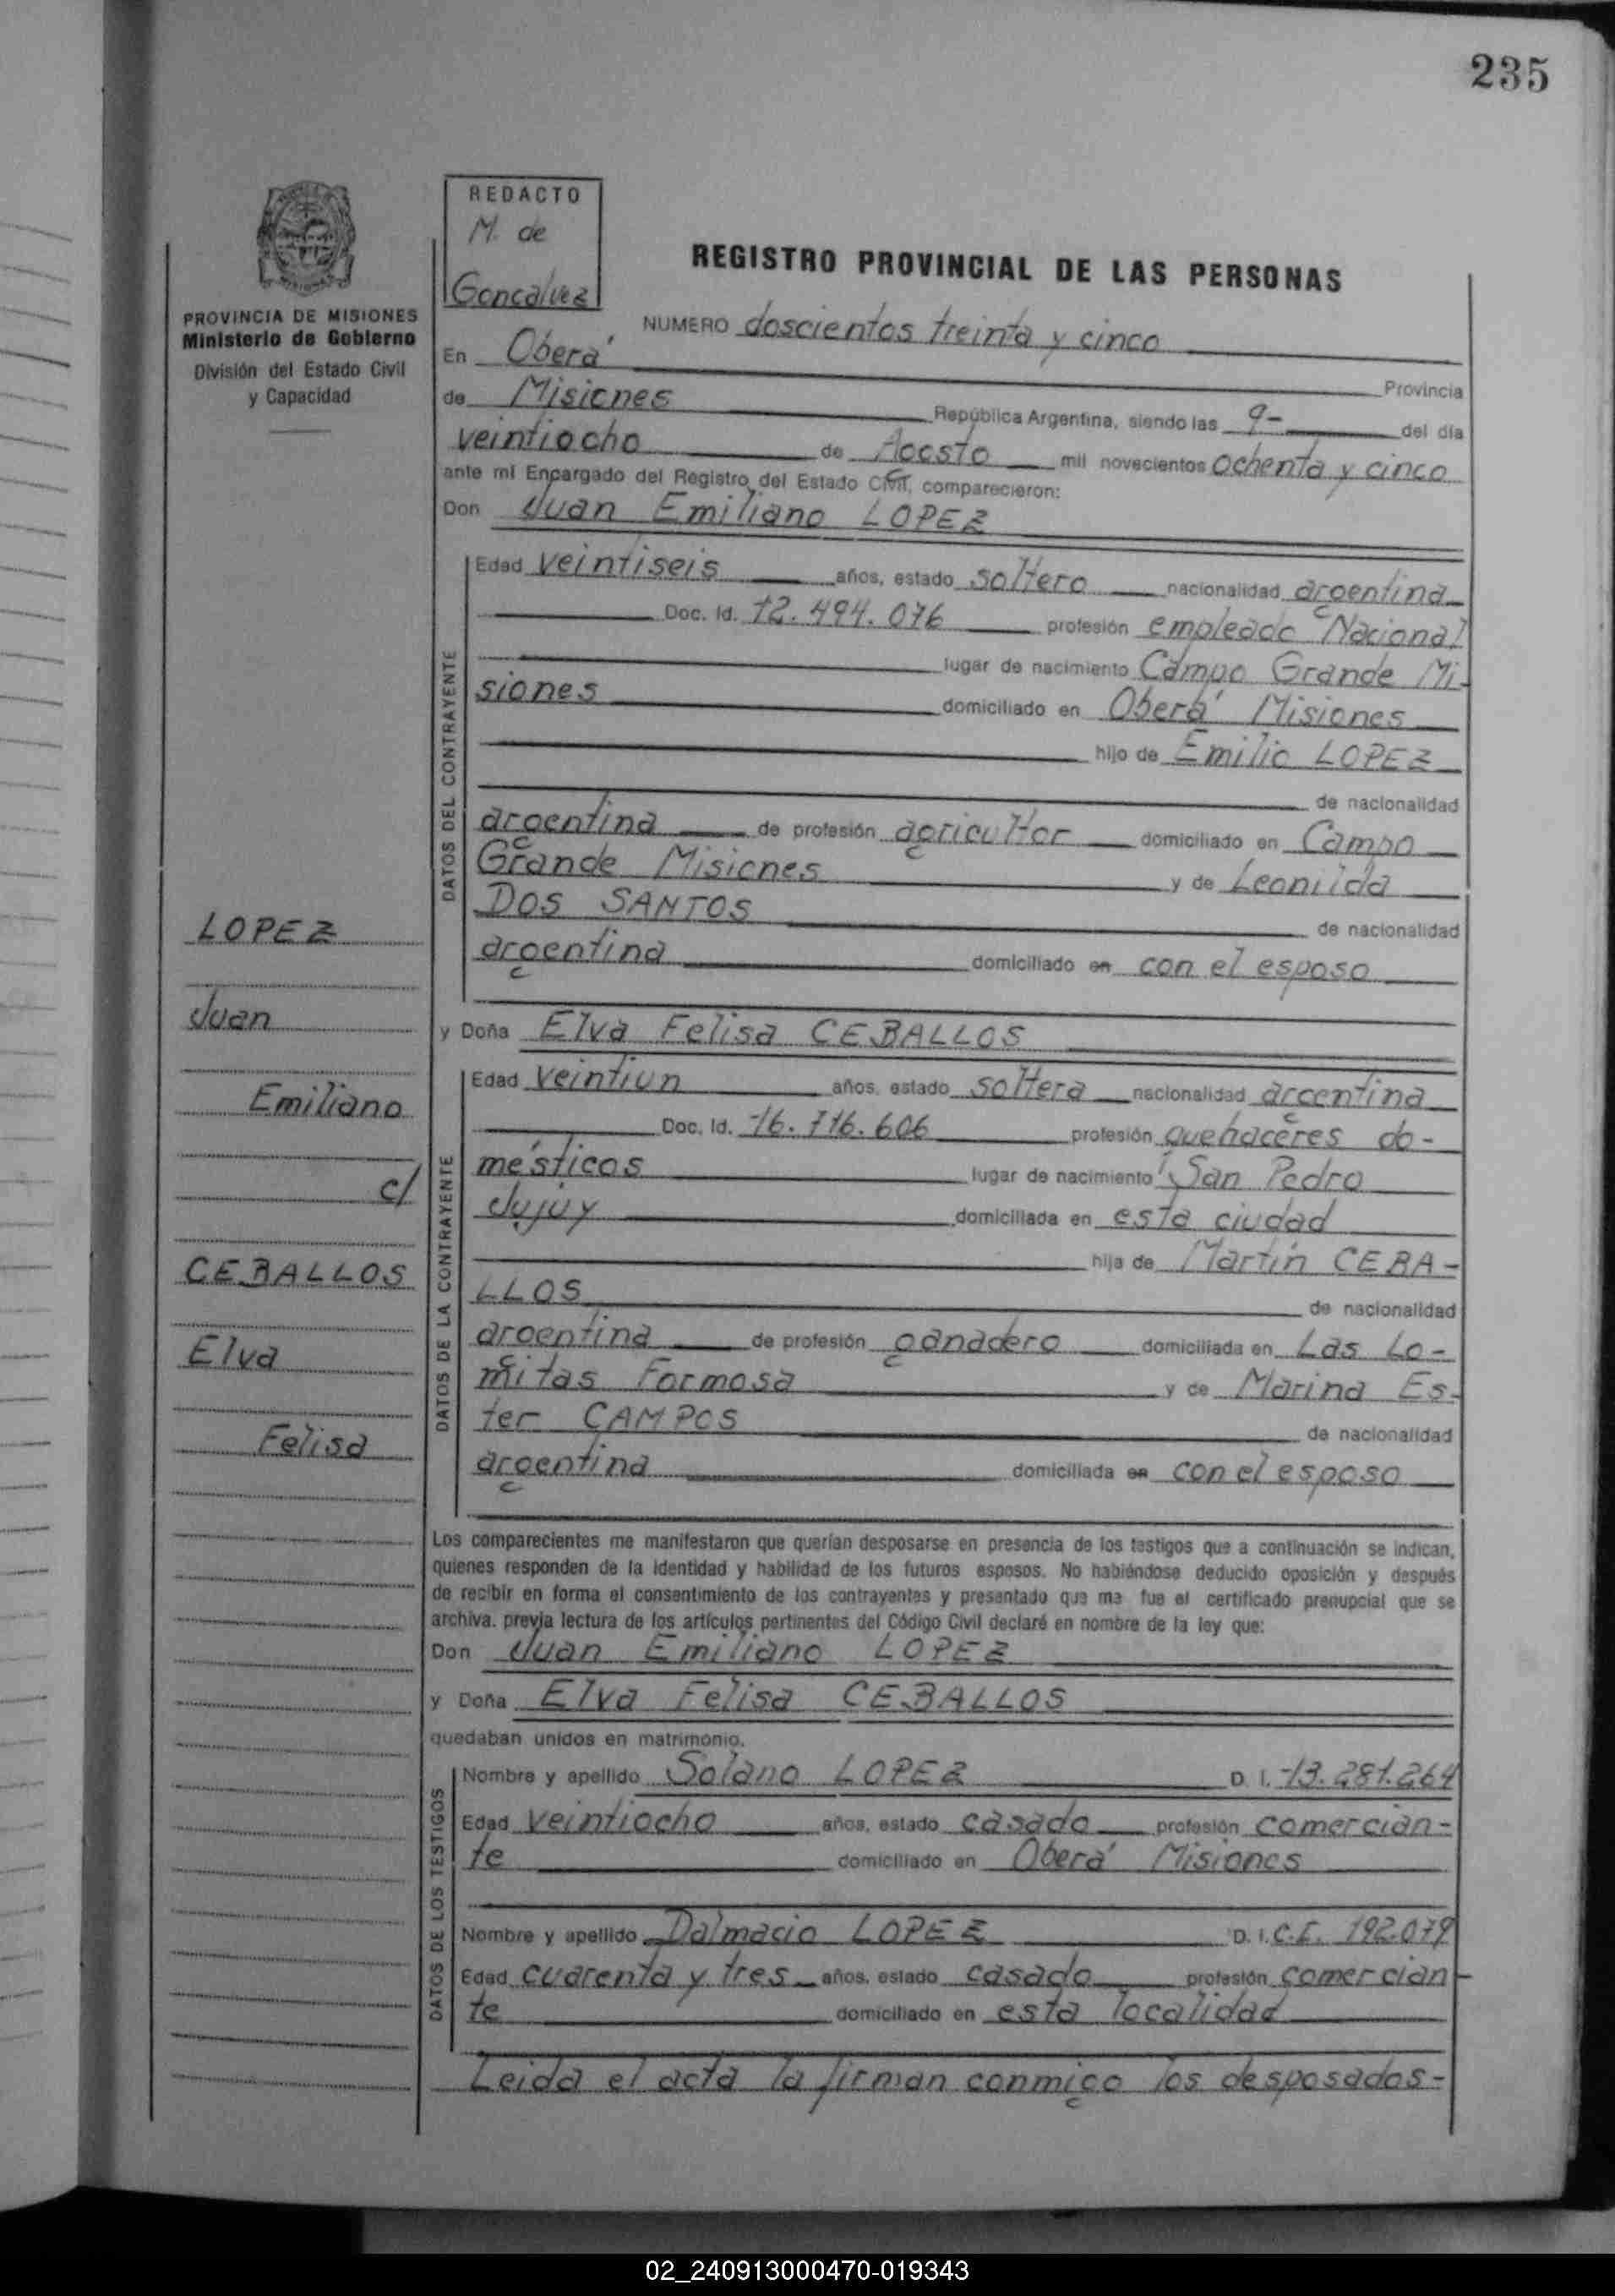 235
REDACTO
M. de
Goncalvez
PROVINCIA DE MISIONES
Ministerio de Gobierno
División del Estado Civil
y Capacidad
REGISTRO PROVINCIAL DE LAS PERSONAS
NUMERO doscientos treinta y cinco
En Oberá Provincia
de Misiones República Argentina, siendo las 9- del día
veintiocho de Agosto mil novecientos ochenta y cinco
ante mí Encargado del Registro del Estado Civil, comparecieron:
Don Juan Emiliano LOPEZ
DATOS DEL CONTRAYENTE
Edad veintiseis años, estado soltero nacionalidad argentina
Doc. Id. 12.494.076 profesión empleado Nacional
lugar de nacimiento Campo Grande Mi-
siones domiciliado en Oberá Misiones
hijo de Emilio LOPEZ
de nacionalidad
argentina de profesión agricultor domiciliado en Campo
Grande Misiones y de Leonilda
DOS SANTOS de nacionalidad
argentina domiciliado en con el esposo
y Doña Elva Felisa CEBALLOS
DATOS DE LA CONTRAYENTE
Edad veintiun años, estado soltera nacionalidad argentina
Doc. Id. 16.716.606 profesión quehaceres do-
mésticos lugar de nacimiento San Pedro
Jujuy domiciliada en esta ciudad
hija de Martín CEBA-
LLOS de nacionalidad
argentina de profesión ganadero domiciliada en Las Lo-
mitas Formosa y de Marina Es-
ter CAMPOS de nacionalidad
argentina domiciliada en con el esposo
LOPEZ
Juan
Emiliano
c/
CEBALLOS
Elva
Felisa
Los comparecientes me manifestaron que querían desposarse en presencia de los testigos que a continuación se indican,
quienes responden de la identidad y habilidad de los futuros esposos. No habiéndose deducido oposición y después
de recibir en forma el consentimiento de los contrayentes y presentado que me fue el certificado prenupcial que se
archiva. previa lectura de los artículos pertinentes del Código Civil declaré en nombre de la ley que:
Don Juan Emiliano LOPEZ
y Doña Elva Felisa CEBALLOS
quedaban unidos en matrimonio.
DATOS DE LOS TESTIGOS
Nombre y apellido Solano LOPEZ D. I. 13.281.264
Edad veintiocho años, estado casado profesión comercian-
te domiciliado en Oberá Misiones
Nombre y apellido Dalmacio LOPEZ D. I. C.I. 192.079
Edad cuarenta y tres años, estado casado profesión comercian-
te domiciliado en esta localidad
Leida el acta la firman conmigo los desposados-
02_240913000470-019343